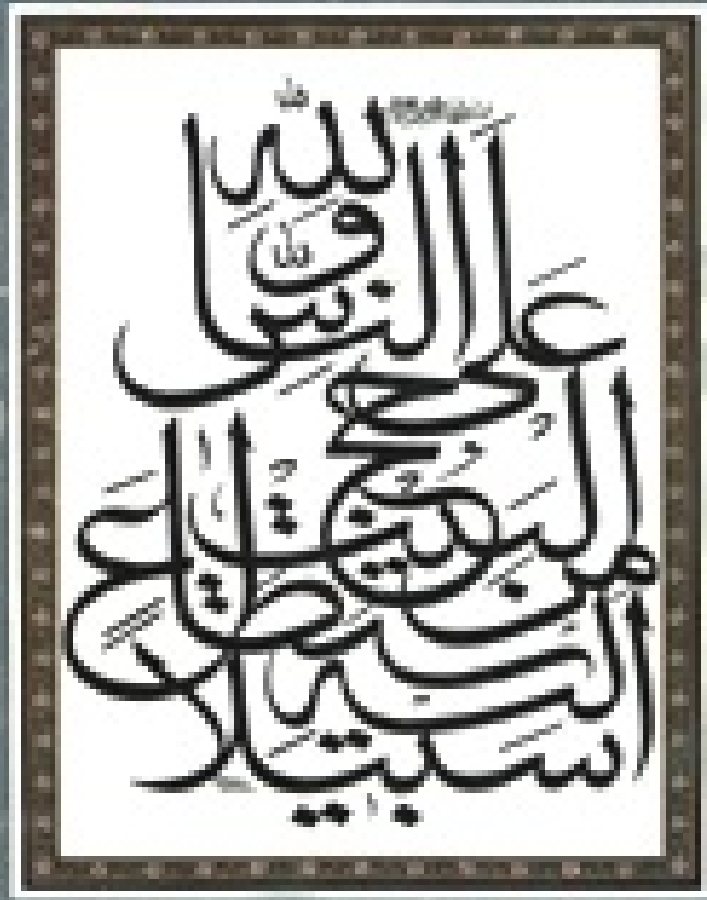 ولله على الناس
حج البيت
من استطاع
إليه سبيلا